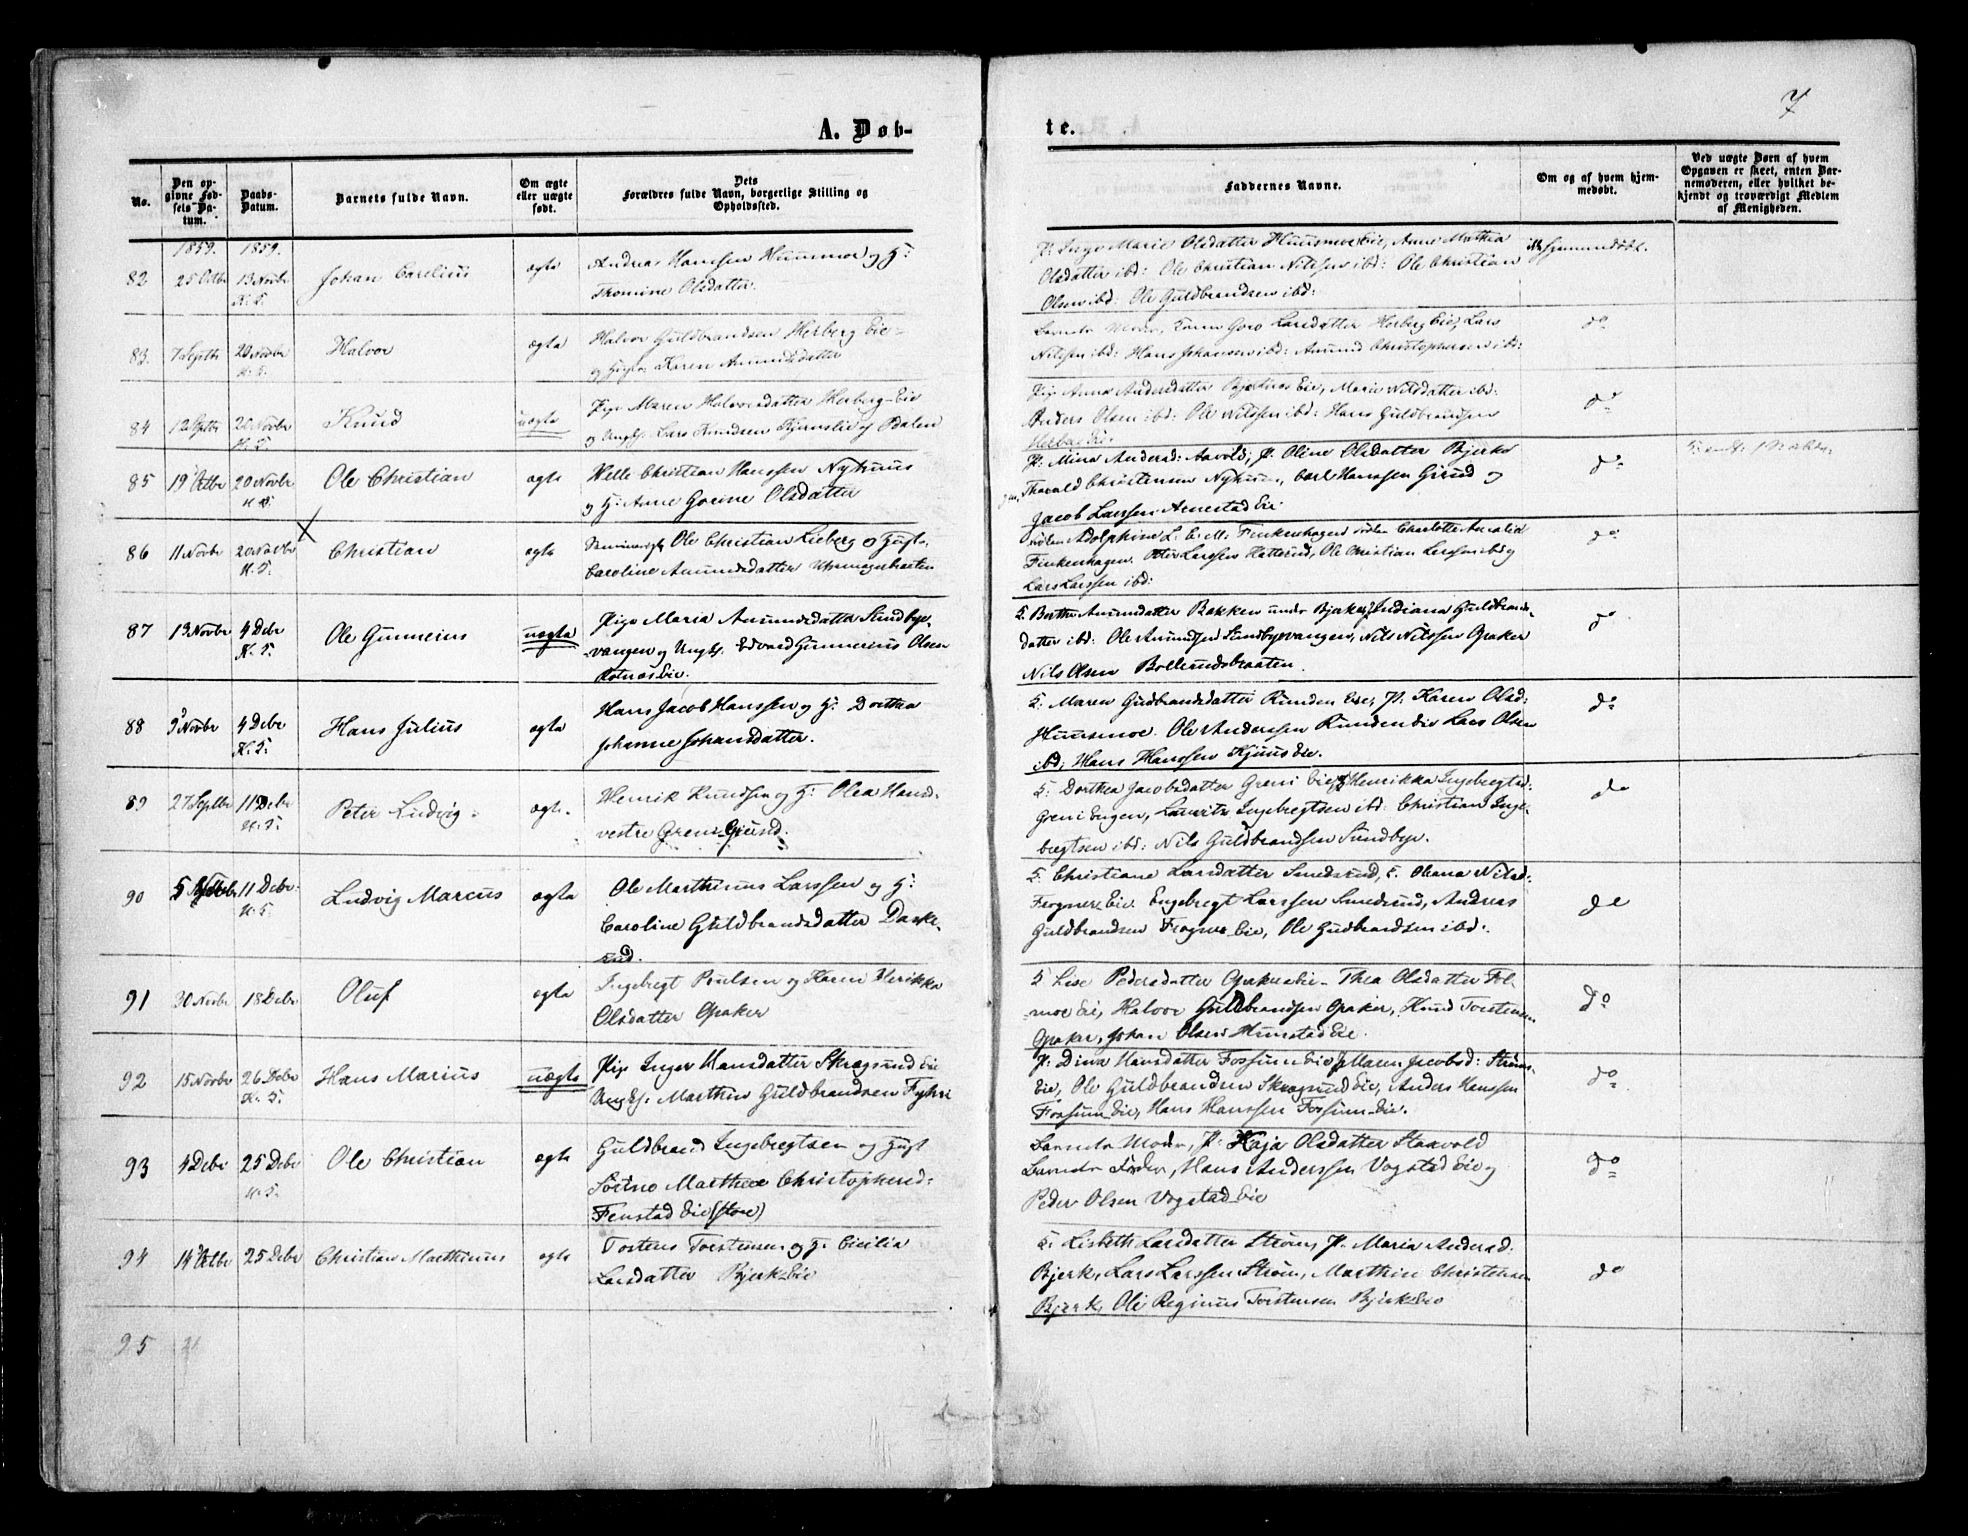 7
A. Døb-
te.
No.
Den op-
givne Fød-
sels Da-
tum.
Daabs-
Datum.
Barnets fulde Navn.
Om ægte
eller uægte
født.
Dets
Forældres fulde Navn, borgerlige Stilling og
Opholdssted.
Faddernes Navne.
Om og af hvem hjem-
medøbt.
Ved uægte Børn af hvem
Opgaven er skeet, enten Bar-
nemoderen, eller hvilket be-
kjendt og troværdigt Medlem
af Menigheden.
1859. 1859.
82 25 Octbr 13 Novbr Johan Carelius ægte Andreas Hanssen Huusmoe og H:
K. T. Thomine Olsdatter.
P: Inge Marie Olsdatter Huusmoe Eie, Anne Mathia
Olsdatter ibd: Ole Christian Nilssen ibd: Ole Christian
Olsen ibd: Ole Guldbrandsen ibd:
83. 7 Septbr 20 Novbr Halvor ægte Halvor Guldbrandsen Herberg Eie
og Karen Amundsdatter
Barnets Moder, Goro Larsdatter Herberg Eie, Lars
Nilssen ibd: Hans Johansen ibd: Amund Christophersen ibd:
do
84 12 Septbr 20 Novbr Knud uægte Pige Maren Halvorsdatter Herberg-Eie
H. T. og Ungk. Lars Knudsen Odalen
Pige Anne Andersdatter Eie, Marie Nilsdatter ibd:
Anders Olsen ibd: Ole Nilssen ibd: Hans Guldbrandsen
Herberg Eie.
do
85 19 Octbr 20 Novbr Ole Christian ægte Helle Christian Hanssen Nyhuus
og H: Anne Gorine Olsdatter
P: Mina Andersd: Aavold, P. Oline Olsdatter Bjerke
Thorvald Christensen Carl Hanssen Gjerud og
Jacob Larssen Arnestad Eie
do
86 11 Novbr 20 Novbr X Christian ægte Ole Christian Lieberg og
H. T. Caroline Amundsdatter
Adolphine L. E. M. Finkenhagen Charlotte Amalia
Finkenhagen. Peter Larssen Hatterud, Ole Christian Larssen ibd og
Lars Larssen ibd:
do
87 13 Novbr 4 Debr Ole Gunneius uægte Pige Maria Amundsdatter Sundbye-
K. T. vangen og Ungk. Edvard Gunnerius Olsen
Eie.
Berthe Amundsdatter Bakken under Bjerke, Indiana Guldbrands-
datter ibd: Ole Amundsen Sundbyevangen, Nils Nilssen Opaker
Nils Olsen Bollerudsbraaten.
do
88 9 Novbr 4 Debr Hans Julius ægte Hans Jacob Hanssen og H: Dorthea
K. T. Johanne Johansdatter.
Maren Gudbrandsdatter Runden Eie, P. Karen Olsd:
Huusmoe. Ole Andersen Runden Eie Lars Olsen
ibd, Hans Hanssen Kjuus Eie.
do
89 27 Septbr 11 Debr Peter Ludvig ægte Henrik Knudsen og H: Olea Hansd:
H. T. vestre Greni Gjerud.
Dorthea Jacobsdatter Greni Eie, Henrikka Ingebregtsd:
Greni Engen, Lauritz Ingebregtsen ibd: Christian Inge-
bregtsen ibd: Nils Guldbrandsen Sundbye.
do
90 5 11 Debr Ludvig Marcus ægte Ole Marthinus Larssen og H:
H. T. Caroline Guldbrandsdatter Daske-
rud.
Christiane Larsdatter Smedsrud, Oleana Nilsd:
Frogner-Eie. Engebregt Larssen Smedsrud, Andreas
Guldbrandsen Frogner-Eie, Ole Gudbrandsen ibd:
do
91 30 Novbr 18 Debr Oluf ægte Ingebregt Poulsen og Karen
Olsdatter Opaker
Lise Pedersdatter Opaker Eie- Thea Olsdatter Fol-
moe Eie, Halvor Guldbrandsen Opaker, Knud Torstensen
Opaker, Johan Olsen Hunstad Eie.
do
92 15 Novbr 26 Debr Hans Marius uægte Pige Inger Hansdatter Skragsrud Eie
K. T. Ungk. Marthin Guldbrandsen
P: Dina Hansdatter Fossum Eie, P Maren Jacobsd: Strøms-
Eie, Ole Guldbrandsen Skragsrud Eie, Anders Hanssen
Fossum Eie, Hans Hanssen Fossum-Eie.
do
93 4 Debr 25 Debr Ole Christian ægte Guldbrand Ingebregtsen og
H. T. Marthea Christophersd:
Fenstad Eie (store)
Barnets Moder, P. Kaja Olsdatter Staavold
Barnets Fader, Hans Anderssen Vogstad Eie og
Peder Olsen Vogstad Eie
do
94 14 Octbr 25 Debr Christian Marthinus ægte Tosten Torstensen og H. Cicilia
Larsdatter Bjerk-Eie
Lisbeth Larsdatter Strøm, P. Maria Andersd.
Bjerk, Lars Larssen Strøm, Marthin Christensen
Bjerk, Ole Reginus Torstensen Bjerk Eie
do
95 21